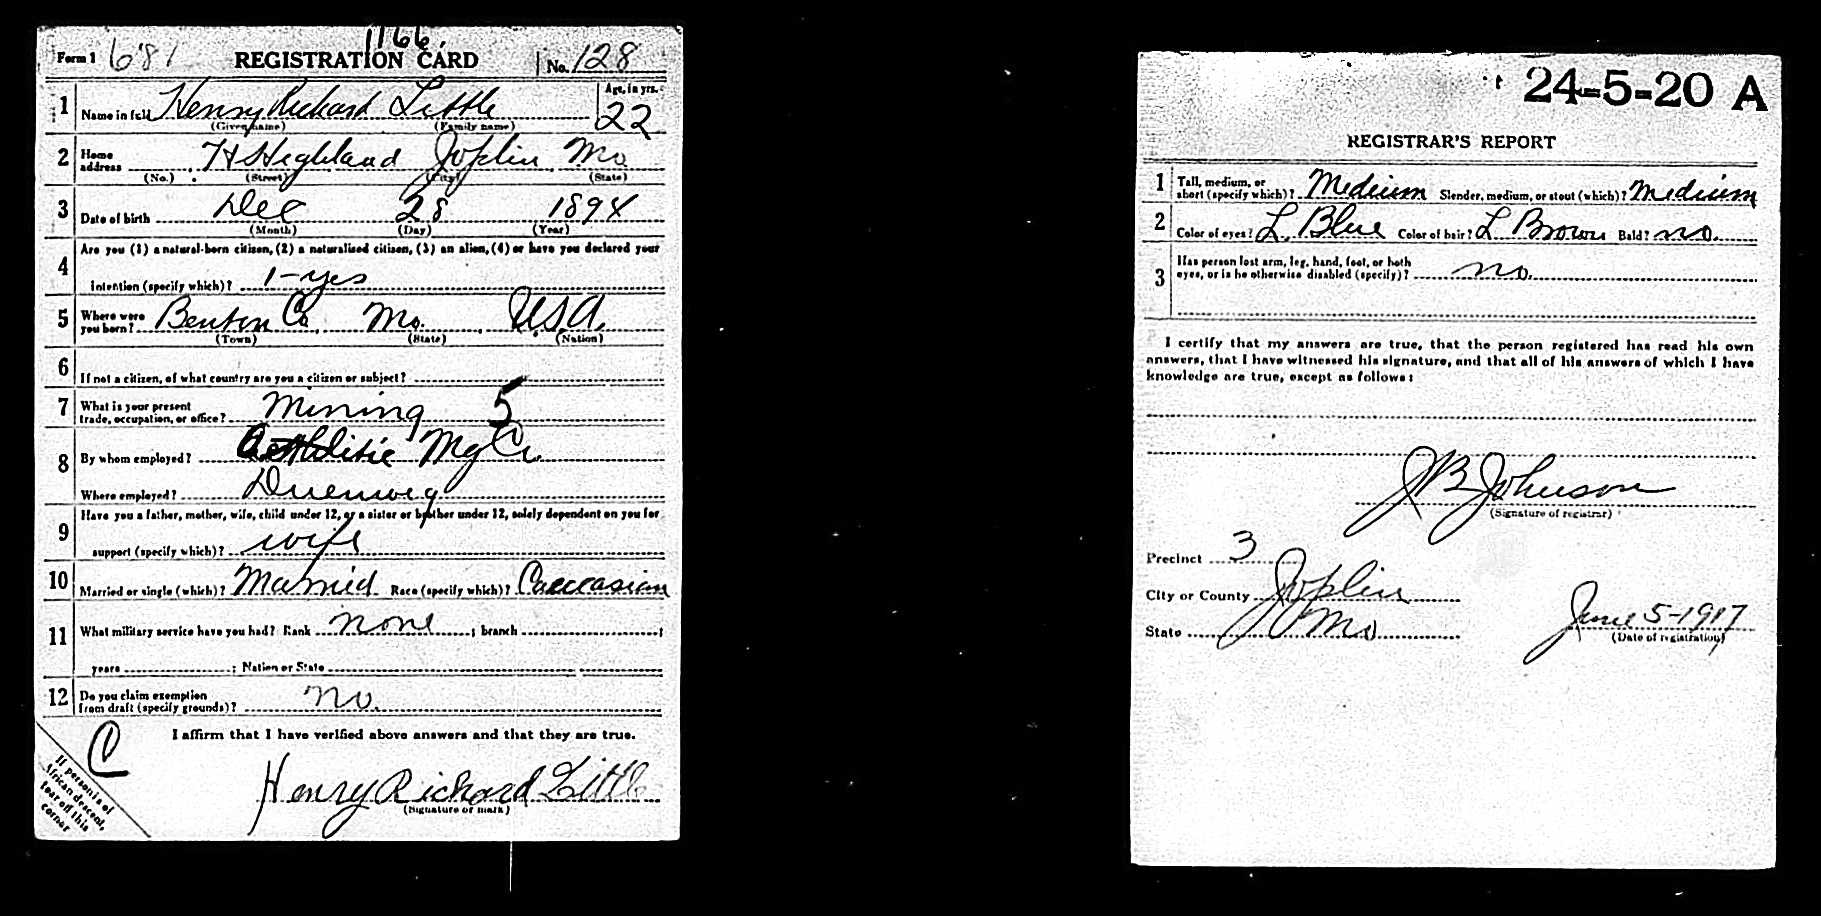 1166
Form 1 681 REGISTRATION CARD No. 128
1 Name in full Henry Richard Little Age, in yrs. 22
(Given name) (Family name)
2 Home address Highland Joplin Mo
(No.) (Street) (City) (State)
3 Date of birth Dec 28 1894
(Month) (Day) (Year)
4 Are you (1) a natural-born citizen, (2) a naturalized citizen, (3) an alien, (4) or have you declared your
intention (specify which)? 1-yes
5 Where were you born? Benton Co. Mo. U.S.A.
(Town) (State) (Nation)
6 If not a citizen, of what country are you a citizen or subject?
7 What is your present trade, occupation, or office? Mining 5
8 By whom employed? Mg Co.
Where employed? Duenweg
9 Have you a father, mother, wife, child under 12, or a sister or brother under 12, solely dependent on you for
support (specify which)? wife
10 Married or single (which)? Married Race (specify which)? Caucasian
11 What military service have you had? Rank none ; branch ;
years ; Nation or State
12 Do you claim exemption from draft (specify grounds)? no.
I affirm that I have verified above answers and that they are true.
C
Henry Richard Little
(Signature or mark)
If person is of
African descent,
tear off this
corner
24-5-20 A
REGISTRAR'S REPORT
1 Tall, medium, or short (specify which)? Medium Slender, medium, or stout (which)? Medium
2 Color of eyes? L. Blue Color of hair? L Brown Bald? no.
3 Has person lost arm, leg, hand, foot, or both
eyes, or is he otherwise disabled (specify)? no.
I certify that my answers are true, that the person registered has read his own
answers, that I have witnessed his signature, and that all of his answers of which I have
knowledge are true, except as follows:
J B Johnson
(Signature of registrar)
Precinct 3
City or County Joplin
State Mo
June 5-1917
(Date of registration)